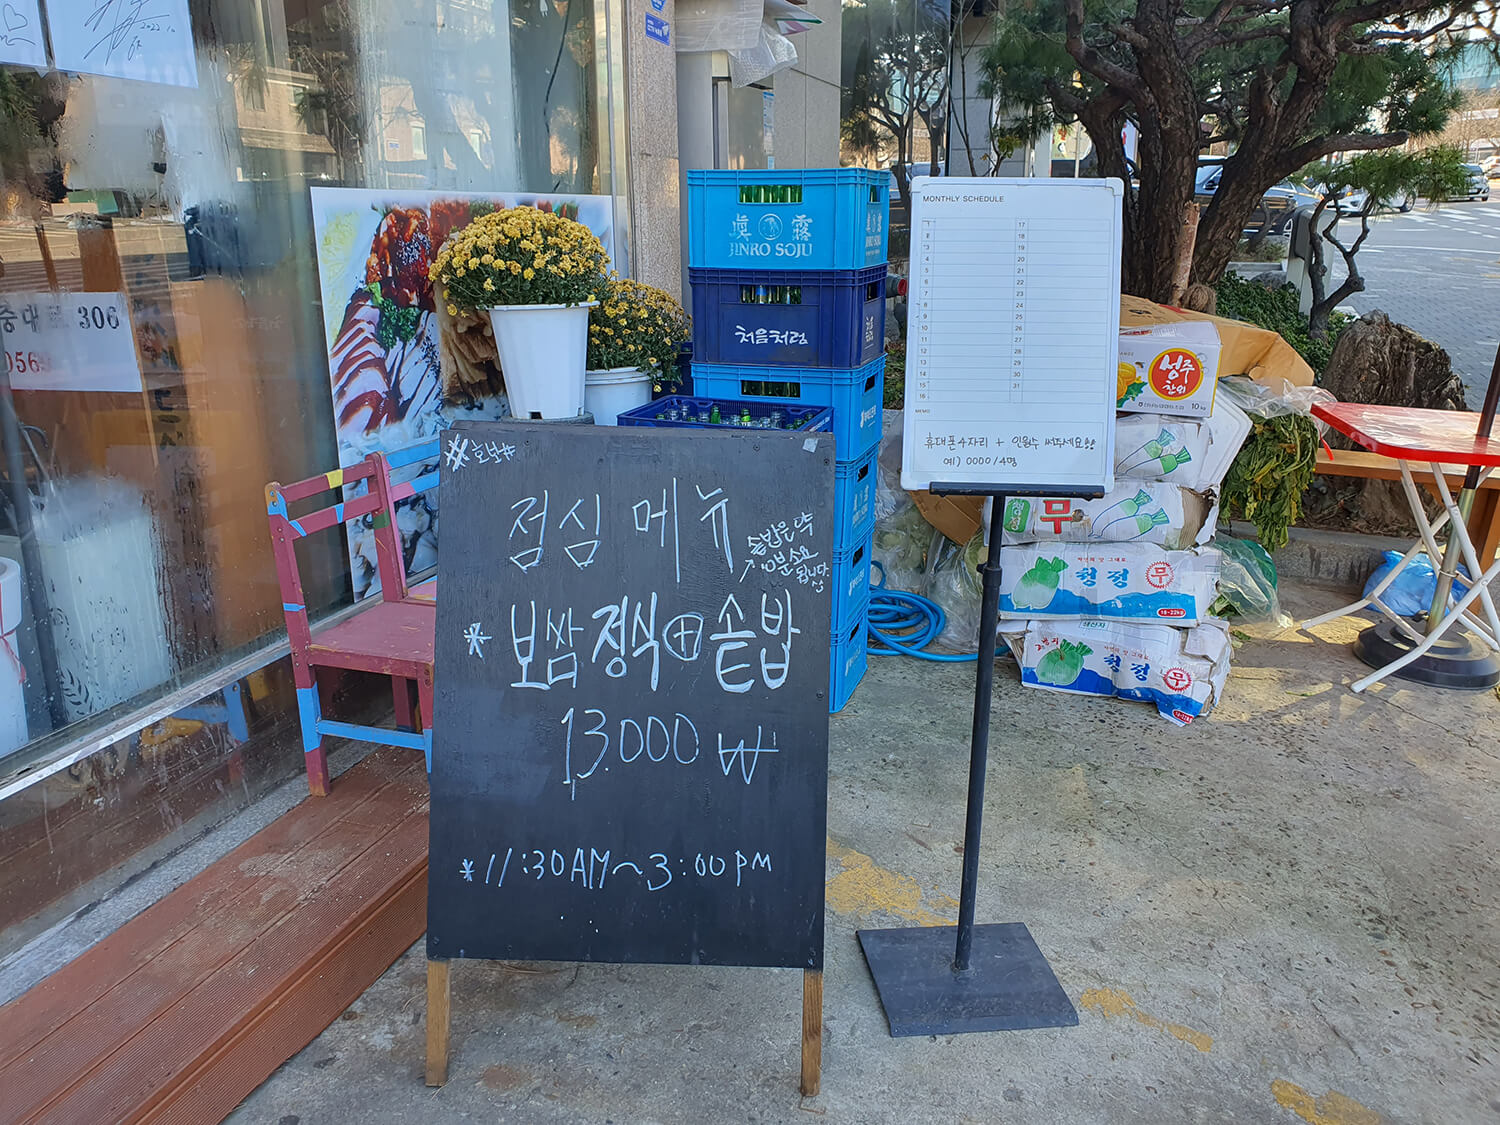 2022.10
중대로 306
#호보#
점심 메뉴
솥밥은 약
분소요
됩니다.
* 보쌈정식 + 솥밥
13.000 ₩
*11:30AM~3:00PM
眞露
JINRO SOJU
처음처럼
MONTHLY SCHEDULE
1 17
2 18
3 19
4 20
5 21
6 22
7 23
8 24
9 25
10 26
11 27
12 28
13 29
14 30
15 31
16
MEMO
휴대폰 4자리 + 인원수 써주세요
예) 0000/4명
성주
참외
10kg
무
청정 무
18~22kg
생산자
청정 무